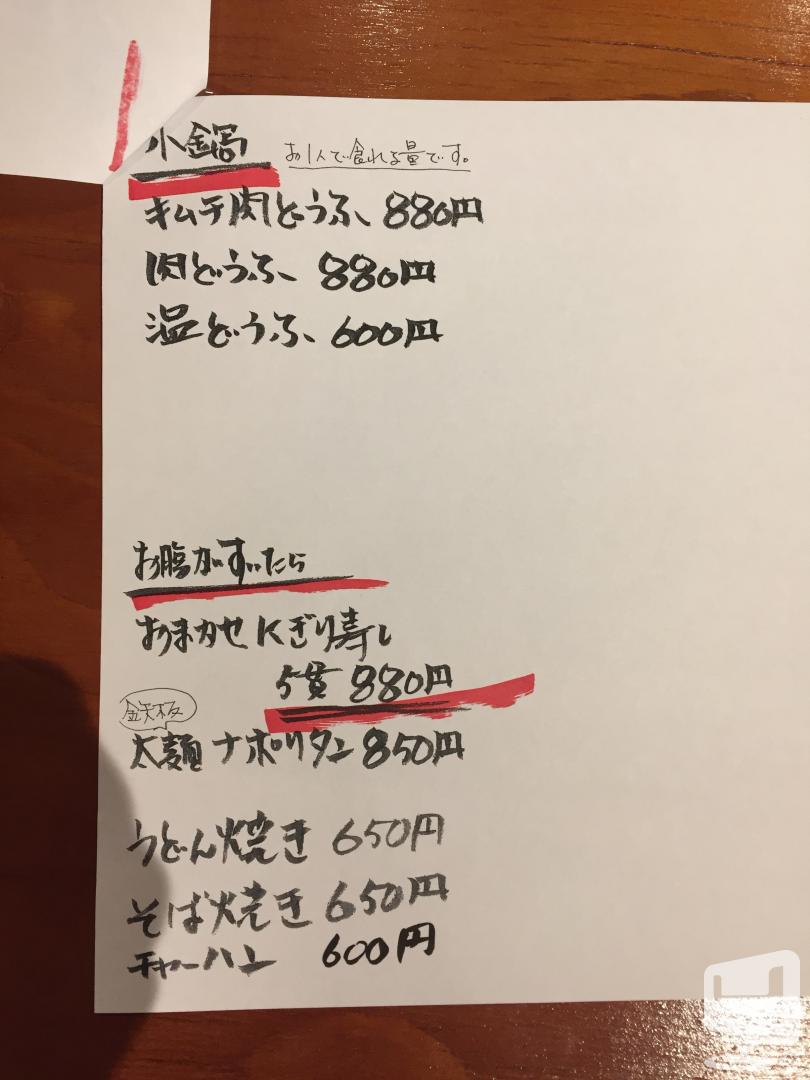 小鍋 お1人で食れる量です。
キムチ肉どうふ、880円
肉どうふ、880円
温どうふ、600円
お腹がすいたら
おまかせにぎり寿し
5貫 880円
鉄板
太麺ナポリタン 850円
うどん焼き 650円
そば焼き 650円
チャーハン 600円